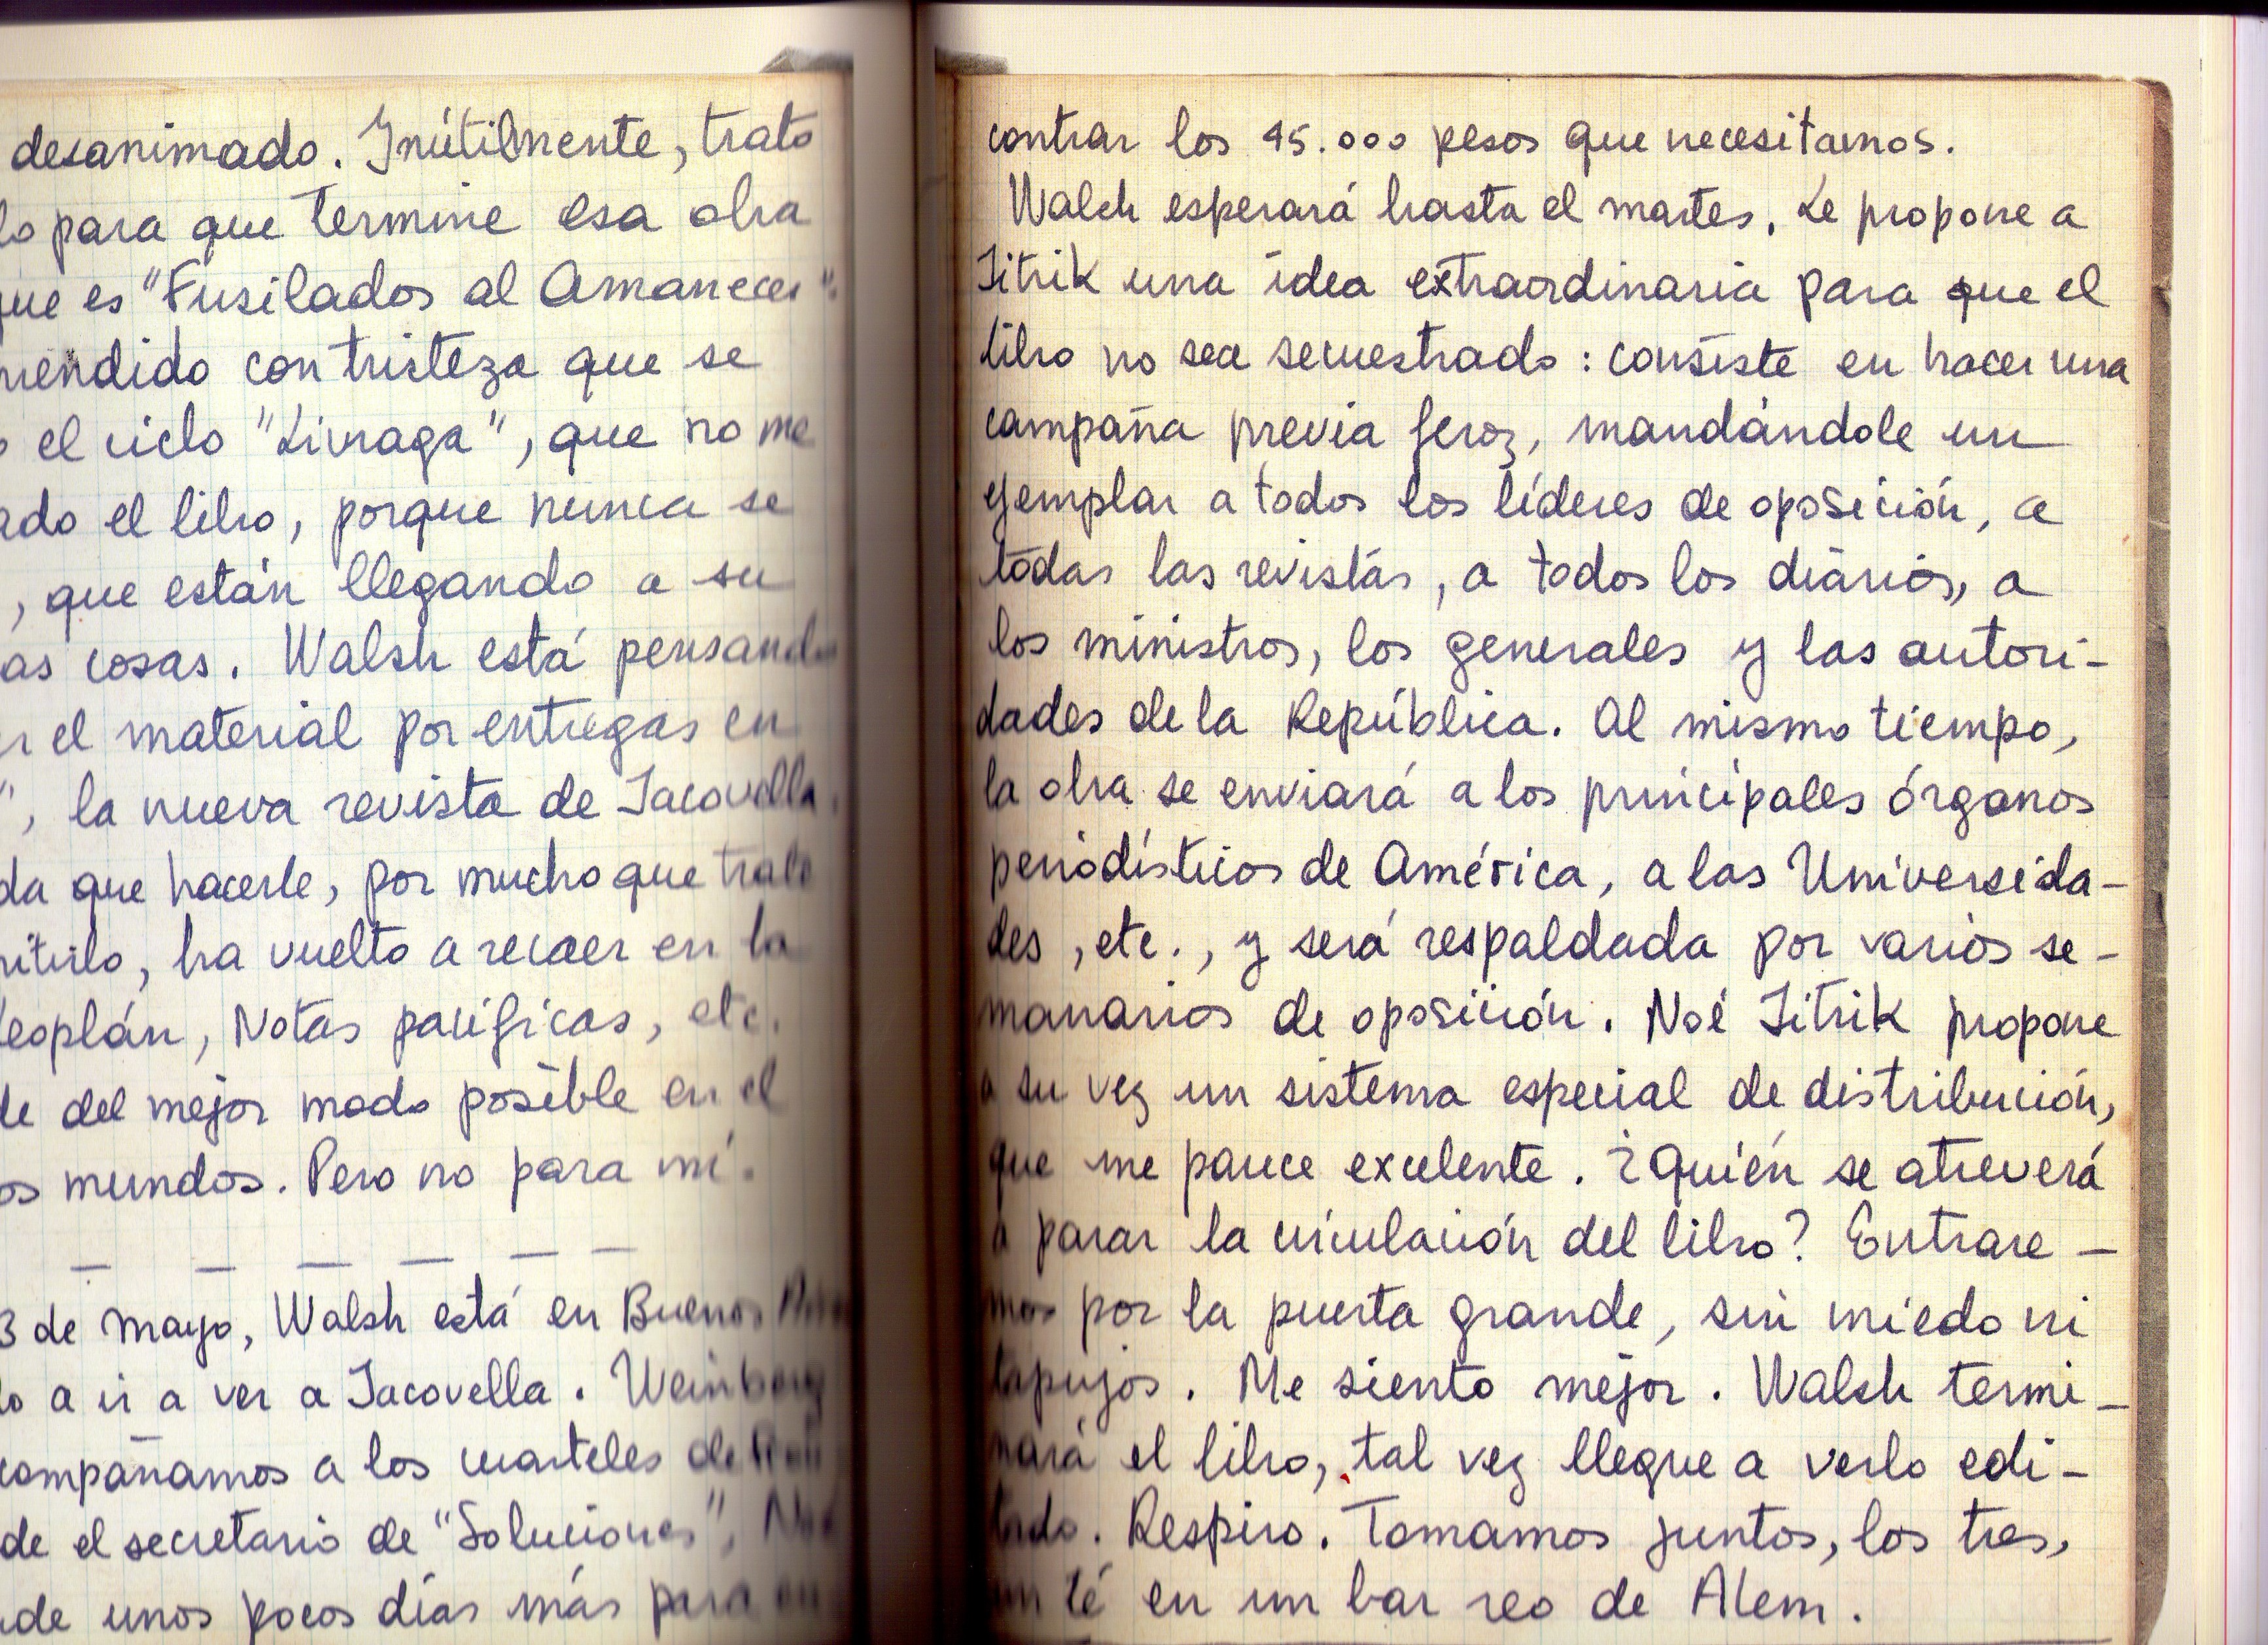 desanimado. Inútilmente, trato
lo para que termine esa obra
que es "Fusilados al Amanecer".
mendido con tristeza que se
el ciclo "Livraga", que no me
ado el libro, porque nunca se
, que están llegando a su
as cosas. Walsh está pensando
el material por entregas en
", la nueva revista de Jacovella.
da que hacerle, por mucho que trate
mitirlo, ha vuelto a recaer en la
Leoplán, Notas pacíficas, etc.
de del mejor modo posible en el
os mundos. Pero no para mí.
3 de mayo, Walsh está en Buenos
lo a ir a ver a Jacovella. Weinberg
compañamos a los cuarteles de
de el secretario de "Soluciones", Noé
de unos pocos días más para en
contrar los 45.000 pesos que necesitamos.
Walsh esperará hasta el martes. Le propone a
Jitrik una idea extraordinaria para que el
libro no sea secuestrado: consiste en hacer una
campaña previa feroz, mandándole un
ejemplar a todos los líderes de oposición, a
todas las revistas, a todos los diarios, a
los ministros, los generales y las autori-
dades de la República. Al mismo tiempo,
la obra se enviará a los principales órganos
periodísticos de América, a las Universida-
des, etc., y será respaldada por varios se-
manarios de oposición. Noé Jitrik propone
a su vez un sistema especial de distribución,
que me parece excelente. ¿Quién se atreverá
a parar la circulación del libro? Entrare-
mos por la puerta grande, sin miedo ni
tapujos. Me siento mejor. Walsh termi-
nará el libro, tal vez llegue a verlo edi-
tado. Respiro. Tomamos juntos, los tres,
un té en un bar reo de Alem.